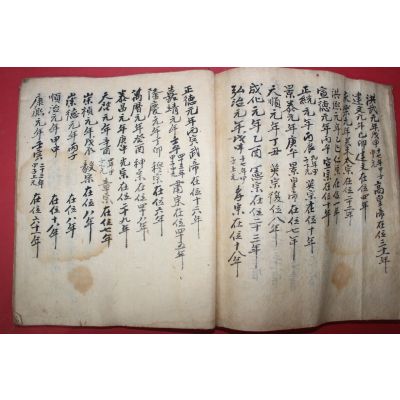 洪武元年戊申 高皇帝在位三十一年
建文元年己卯 建文在位四年
永樂元年癸未 在位二十二年
洪熙元年乙巳
宣德元年丙午 宣宗在位十年
正統元年丙辰 英宗在位十年
景泰元年庚午 景皇帝在位七年
天順元年丁丑 英宗復位八年
成化元年乙酉 憲宗在位二十三年
弘治元年戊申 孝宗在位十八年
正德元年丙寅 武帝在位十六年
嘉靖元年壬午 肅宗在位四十五年
隆慶元年丁卯 穆宗在位六年
萬曆元年癸酉 神宗在位四十八年
泰昌元年庚申 光宗在位二十九年
天啓元年辛酉 在位七年
崇禎元年戊辰 毅宗在位十八年
崇德元年丙子 在位八年
順治元年甲申 在位十八年
康熙元年壬寅 在位六十一年